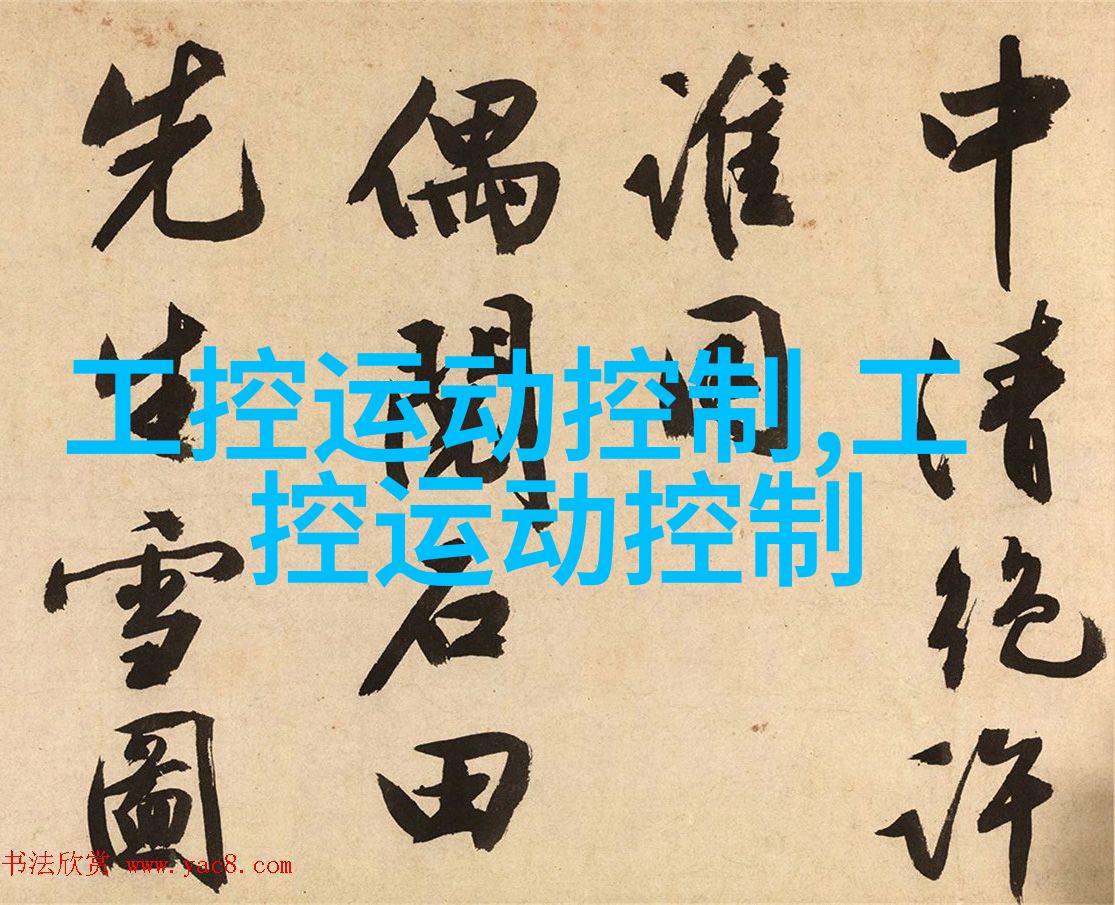 中清絶許
誰同
偶閱石田
先生雪圖
工控运动控制,工
控运动控制
书法欣赏 www.yac8.com